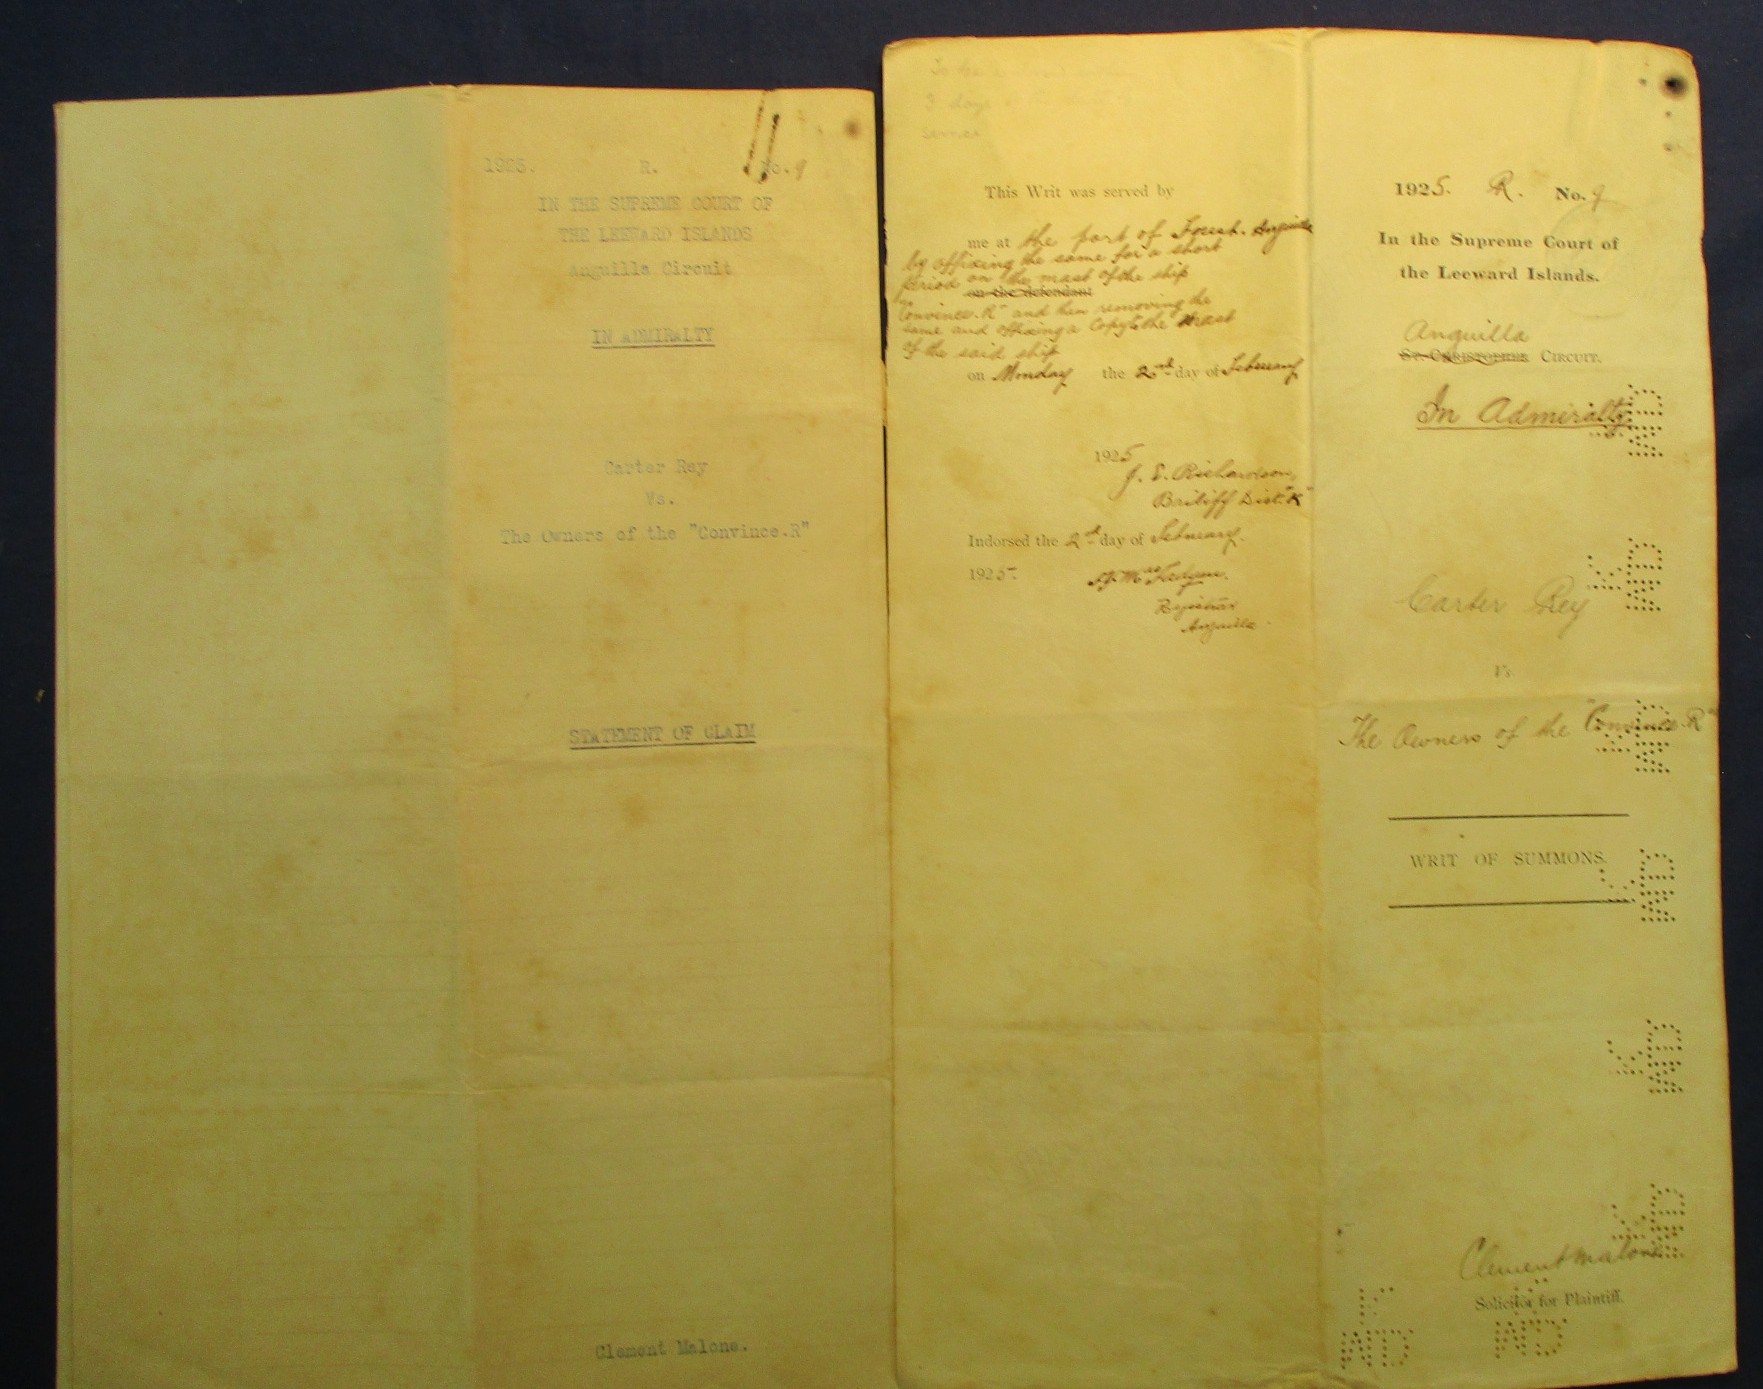 1925. R. No. 9
IN THE SUPREME COURT OF
THE LEEWARD ISLANDS
Anguilla Circuit
IN ADMIRALTY
Carter Rey
Vs.
The Owners of the "Convince.R"
STATEMENT OF CLAIM
Clement Malone.
To be
3 days
This Writ was served by
me at the port of Forest. Anguilla
by affixing the same for a short
period on the mast of the ship
on the defendant
"Convince.R" and then removing the
same and affixing a copy to the mast
of the said ship
on Monday the 2nd day of February
1925
J. E. Richardson,
Bailiff Dist. "K"
Indorsed the 2nd day of February.
1925
Registrar
Anguilla.
1925. R. No. 9
In the Supreme Court of
the Leeward Islands.
Anguilla
St. Christopher Circuit.
In Admiralty
Carter Rey
Vs
The Owners of the "Convince.R"
WRIT OF SUMMONS.
Clement Malone
Solicitor for Plaintiff.